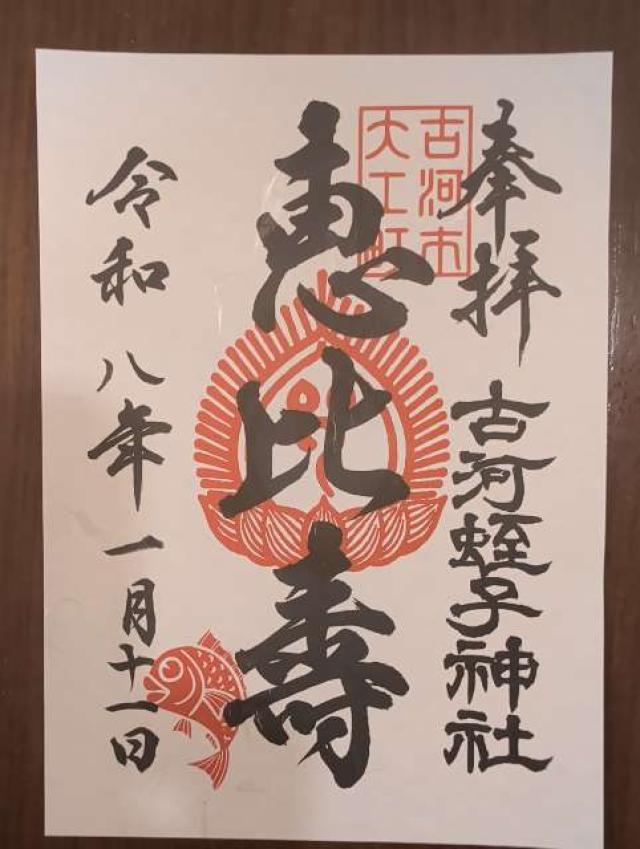 奉拝
古河蛭子神社
古河市
大工町
恵比寿
令和八年一月十一日